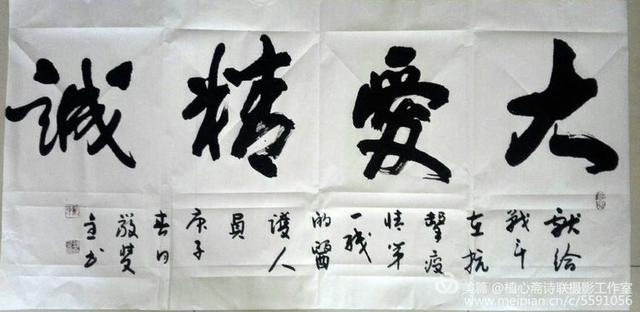 大愛精誠
獻给
戰斗
在抗
擊疫
情第
一线
的醫
護人
員
庚子
春日
敬斐
金书
美篇@植心斋诗联摄影工作室
www.meipian.cn/c/5591056